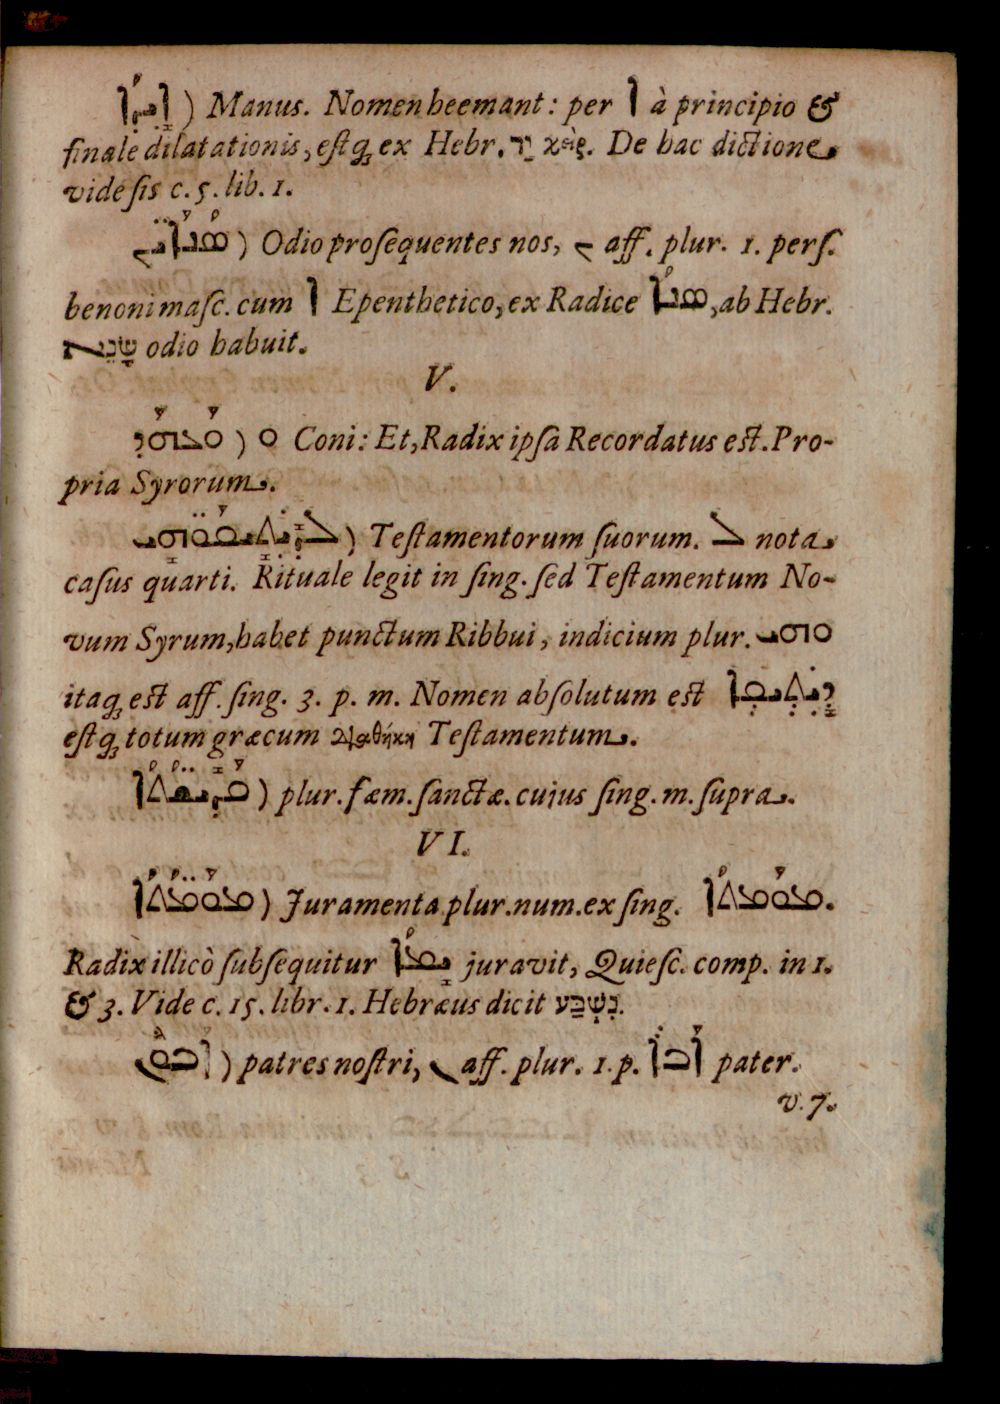 ܐܝܕܐ ) Manus. Nomen heemant : per ܐ à principio &
finale dilatationis, estq; ex Hebr. יָד χεὶρ. De hac dictione
vide sis c. 5. lib. 1.
) Odio prosequentes nos, ܢ aff. plur. 1. pers.
benoni masc. cum ܐ Epenthetico, ex Radice ܣܢܐ, ab Hebr.
שָׂנֵא odio habuit.
V.
) ܘ Coni : Et, Radix ipsa Recordatus est. Pro-
pria Syrorum.
) Testamentorum suorum. ܠ nota
casus quarti. Rituale legit in sing. sed Testamentum No-
vum Syrum, habet punctum Ribbui, indicium plur. ܘܗܝ
itaq; est aff. sing. 3. p. m. Nomen absolutum est ܕܝܬܝܩܐ
estq; totum græcum διαθήκη Testamentum.
ܩܕܝܫܬܐ ) plur. fæm. sanctæ. cujus sing. m. supra.
VI.
ܡܘܡܬܐ ) Juramenta plur. num. ex sing. ܡܘܡܬܐ.
Radix illicò subsequitur ܝܡܐ juravit, Quiesc. comp. in 1.
& 3. Vide c. 15. libr. 1. Hebræus dicit נִשְׁבַּע.
ܐܒܗܢ ) patres nostri, ܢ aff. plur. 1. p. ܐܒܐ pater.
v. 7.